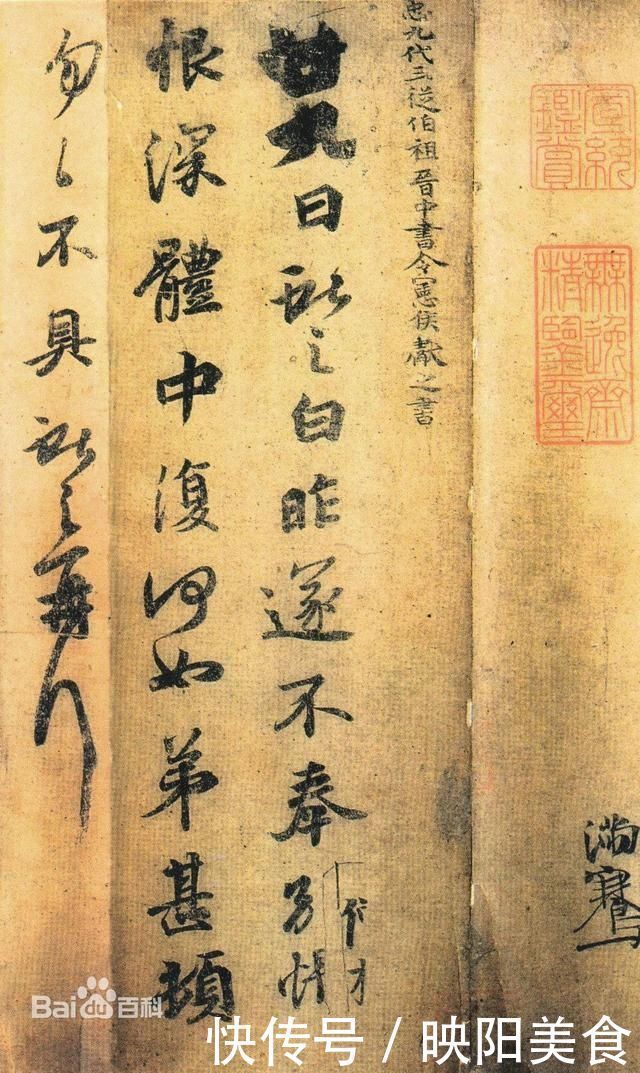 宣統鑒賞
無逸齋精鑒璽
滿騫
九代三從伯祖晉中書令憲侯獻之書
廿九日獻之白昨遂不奉別悵
恨深體中復何如弟甚頓
勿〻不具獻之再拜
Baidu百科
快传号 / 映阳美食